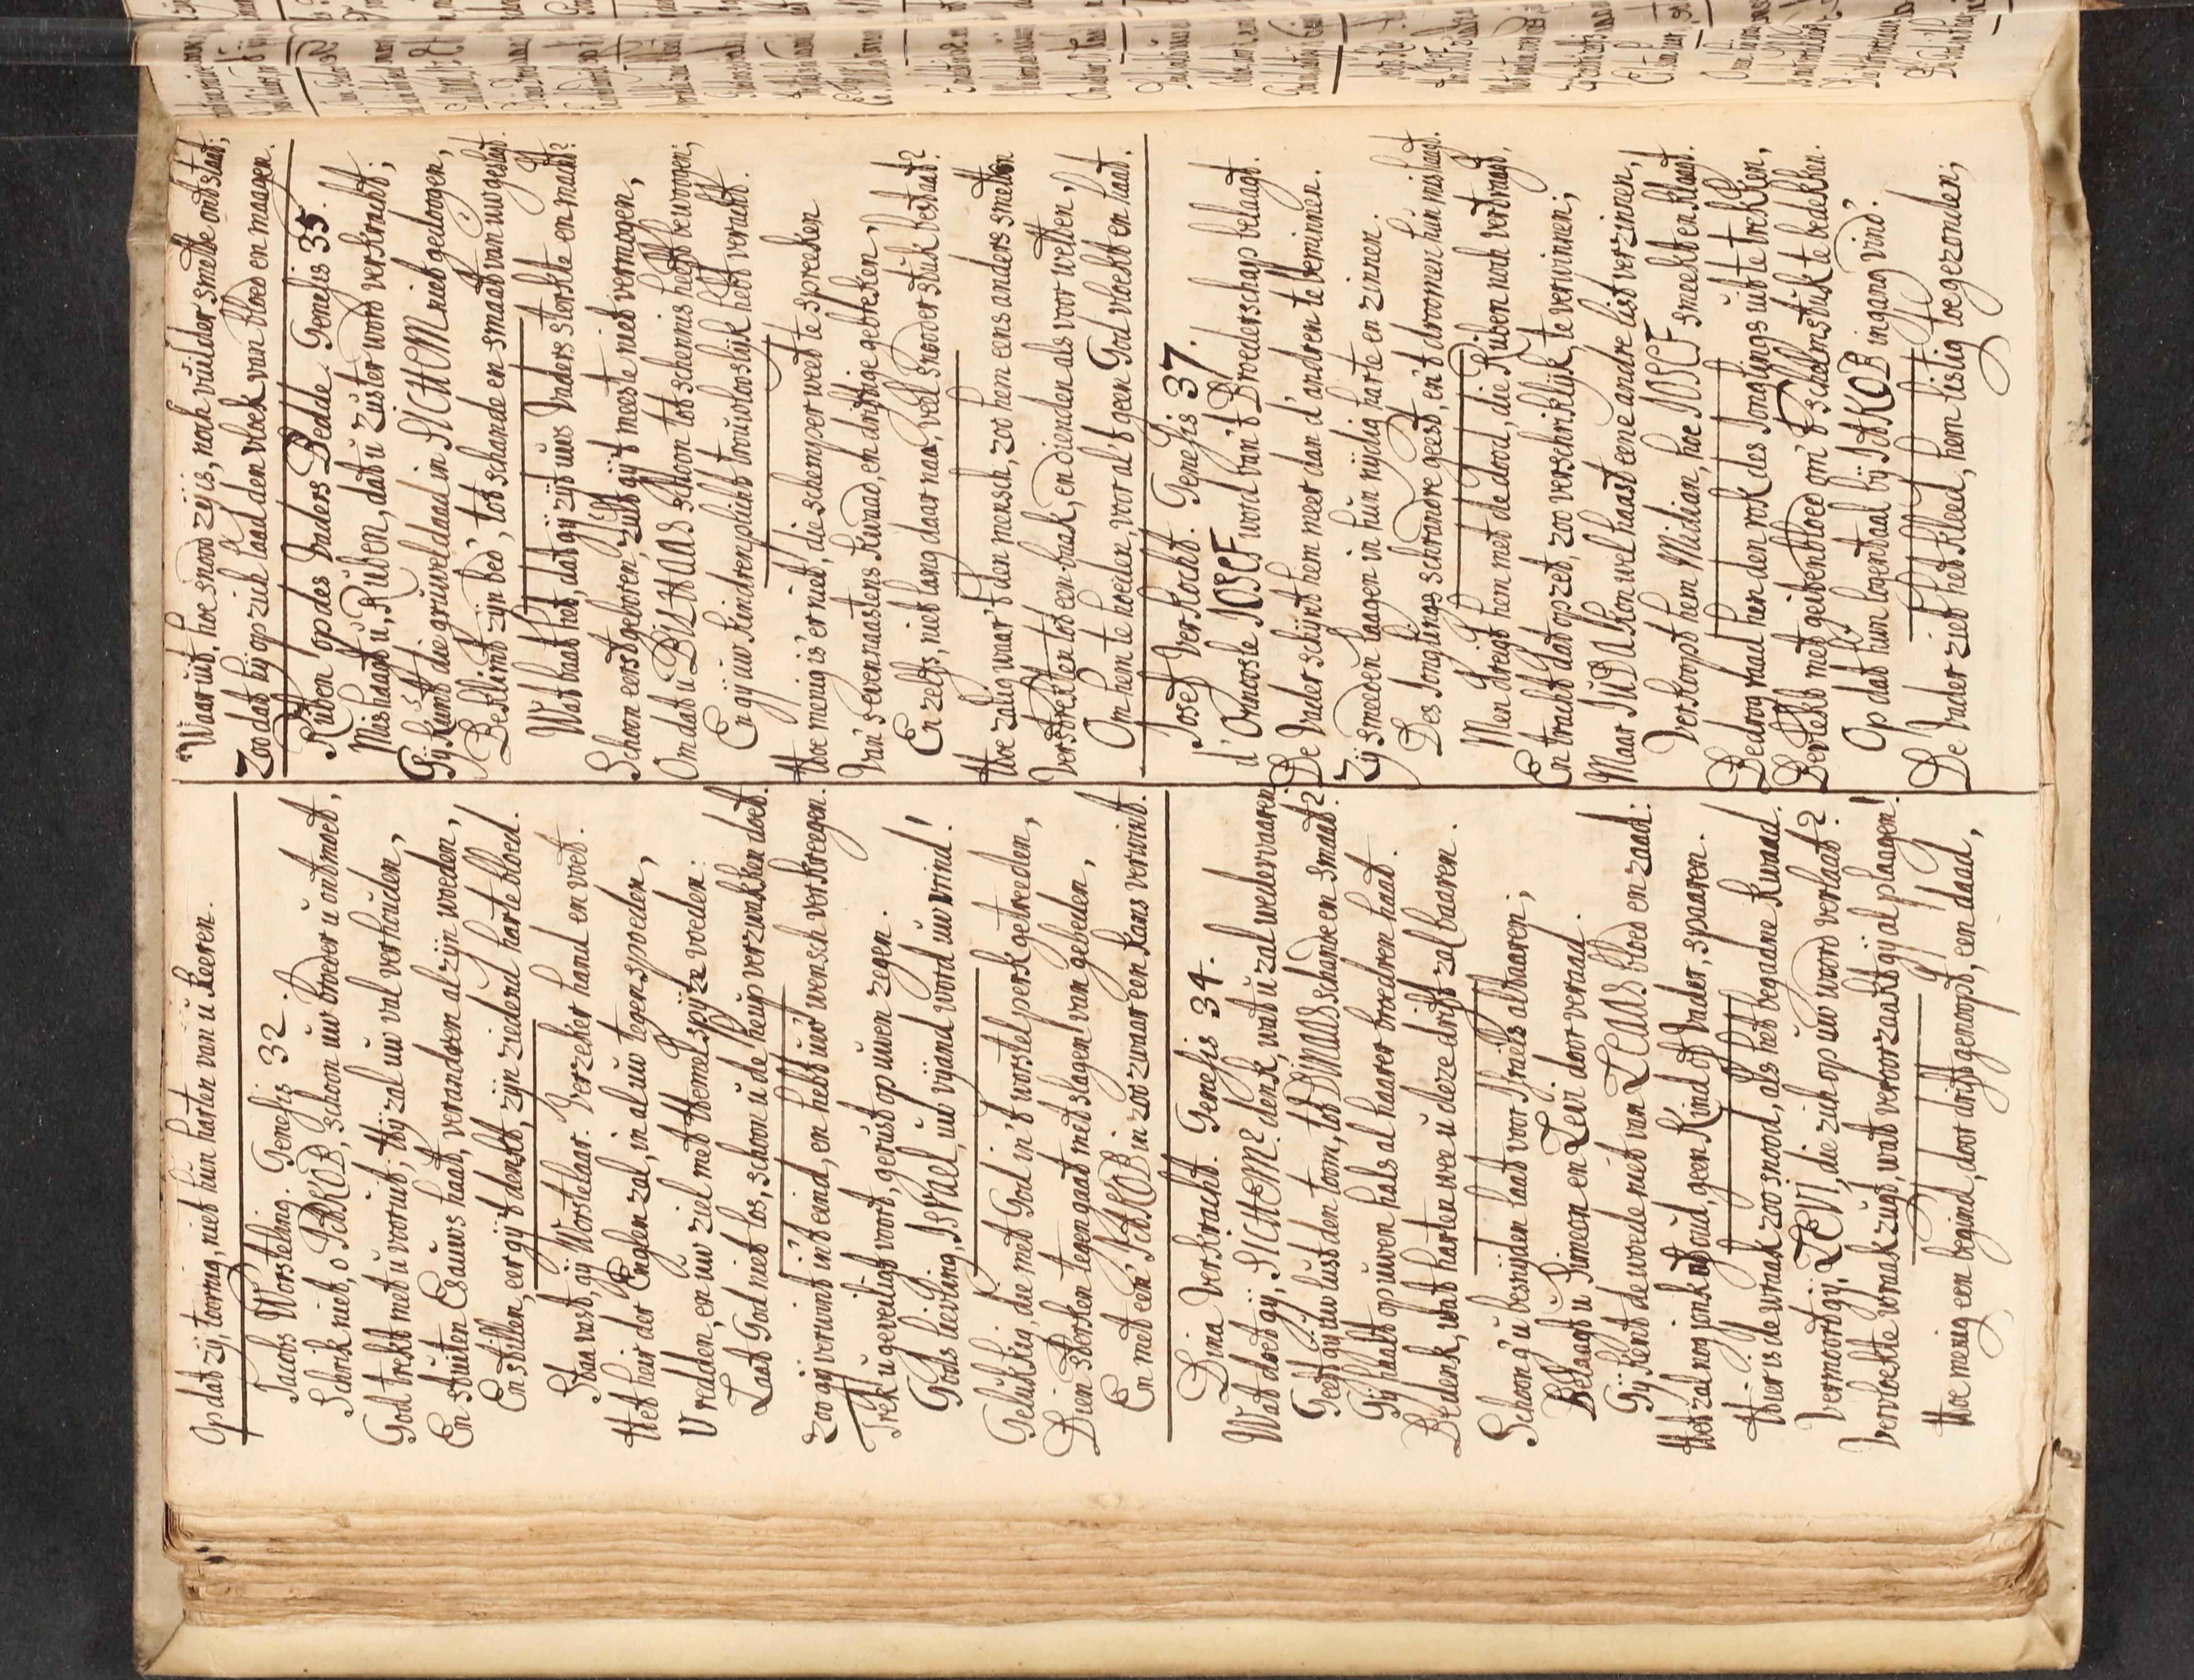 Op dat zij, toornig, niet hun harten van u keeren.
Jacobs Worsteling. Genesis 32.
Schrik niet, o JAKOB, schoon uw broeder u ontmoet,
God trekt met u vooruit; Hij zal uw val verhouden,
En stuiten Esauws haat, veranderen al zijn woeden,
En stillen, eer gij 't denkt, zijn ziedend harte bloed.
Staa vast, gij Worstelaar. Verzeker hand en voet.
Het heir der Englen zal, in al uw tegenspoeden,
U redden, en uw ziel met Hemelspijze voeden:
Laat God niet los, schoon u de heup verzwakken doet.
Zoo gij verwint in 't eind, en hebt uw' wensch verkreegen.
Trek u geveiligt voort, gerust op uwen zegen.
Gods lieveling, Israel, uw vijand word uw vrind!
Gelukkig, die met God in 't worstelperk getreeden,
Dien Sterken tegen gaat met slagen van gebeden,
En met een' JAKOB in zoo zwaar een kans verwint.
Dina Verkracht. Genesis 34.
Wat doet gij, SICHEM? denk, wat u zal wedervaaren
Geeft gij uw lust den toom, tot DINAAS schande en smaat?
Gij haalt op uwen hals al haarer broedren haat.
Bedenk, wat harten wee u deze drift zal baaren.
Schoon g' u besnijden laat voor Israels altaaren;
Belaagt u Simeon en Levi door verraad.
Gij kent de woede niet van LEAAS bloed en zaad:
Het zal nog jonk nog oud, geen Kind of Vader, spaaren.
Hier is de wraak zoo snood, als het begaane kwaad.
Vermoordt gij, LEVI, die zich op uw woord verlaat?
Vervloekte wraakzugt, wat veroorzaakt gij al plaagen!
Hoe menig een begind, door drift genoopt, een daad,
Waar uit, hoe snood zy is, noch vuilder smette ontstaat;
Zoo dat hij op zich laad den vloek van bloed en maagen.
Ruben op des Vaders Bedde. Genesis 35.
Mishaagt u, Ruben, dat u Zuster word verkracht;
Gij kunt die gruweldaad in SICHEM niet gedoogen,
Beklimt zijn bed', tot schande en smaat van uw geslagt.
Wat baat het, dat gij zijt uws Vaders sterkte en macht?
Schoon eerst gebooren, zult gij 't meeste niet vermogen,
Om dat u BILHAAS schoon tot schennis heeft bewoogen;
En gij uw Kindrenplicht trouwlooslijk hebt veracht.
Hoe menig is 'er niet, die schemper weet te spreeken
Van 's evennaastens kwaad, en driftige gebreken,
En zelfs, niet lang daar naa, veel snooder stuk bestaat?
Hoe zalig waar 't den mensch, zoo hem eens anders smetten
Verstrekten tot een baak, en dienden als voor wetten,
Om hem te hoeden, voor al 't geen God vloekt en haat.
Josef Verkocht. Genesis 37.
d' Onnoosle JOSEF word van 't Broederschap belaagt.
De Vader schijnt hem meer dan d' andren te beminnen.
Zij smeeden laagen in hun nijdig harte en zinnen.
Des Jonglings schrandre geest, en 't droomen hun mishaagt.
Men dreigt hem met de dood, die Ruben noch vertraagt,
En tracht dat opzet, zoo verschriklijk, te verwinnen;
Maar JUDA kon wel haast eene andre list verzinnen,
Verkoopt hem Midian, hoe JOSEF smeekt en klaagt.
Bedrog raad hen den rok des Jonglings uit te trekken,
Bevlekt met geitenbloed om 't schelmstuk te bedekken.
Op dat hun logentaal bij JAKOB ingang vind'.
De Vader ziet het kleed, hem listig toegezonden;